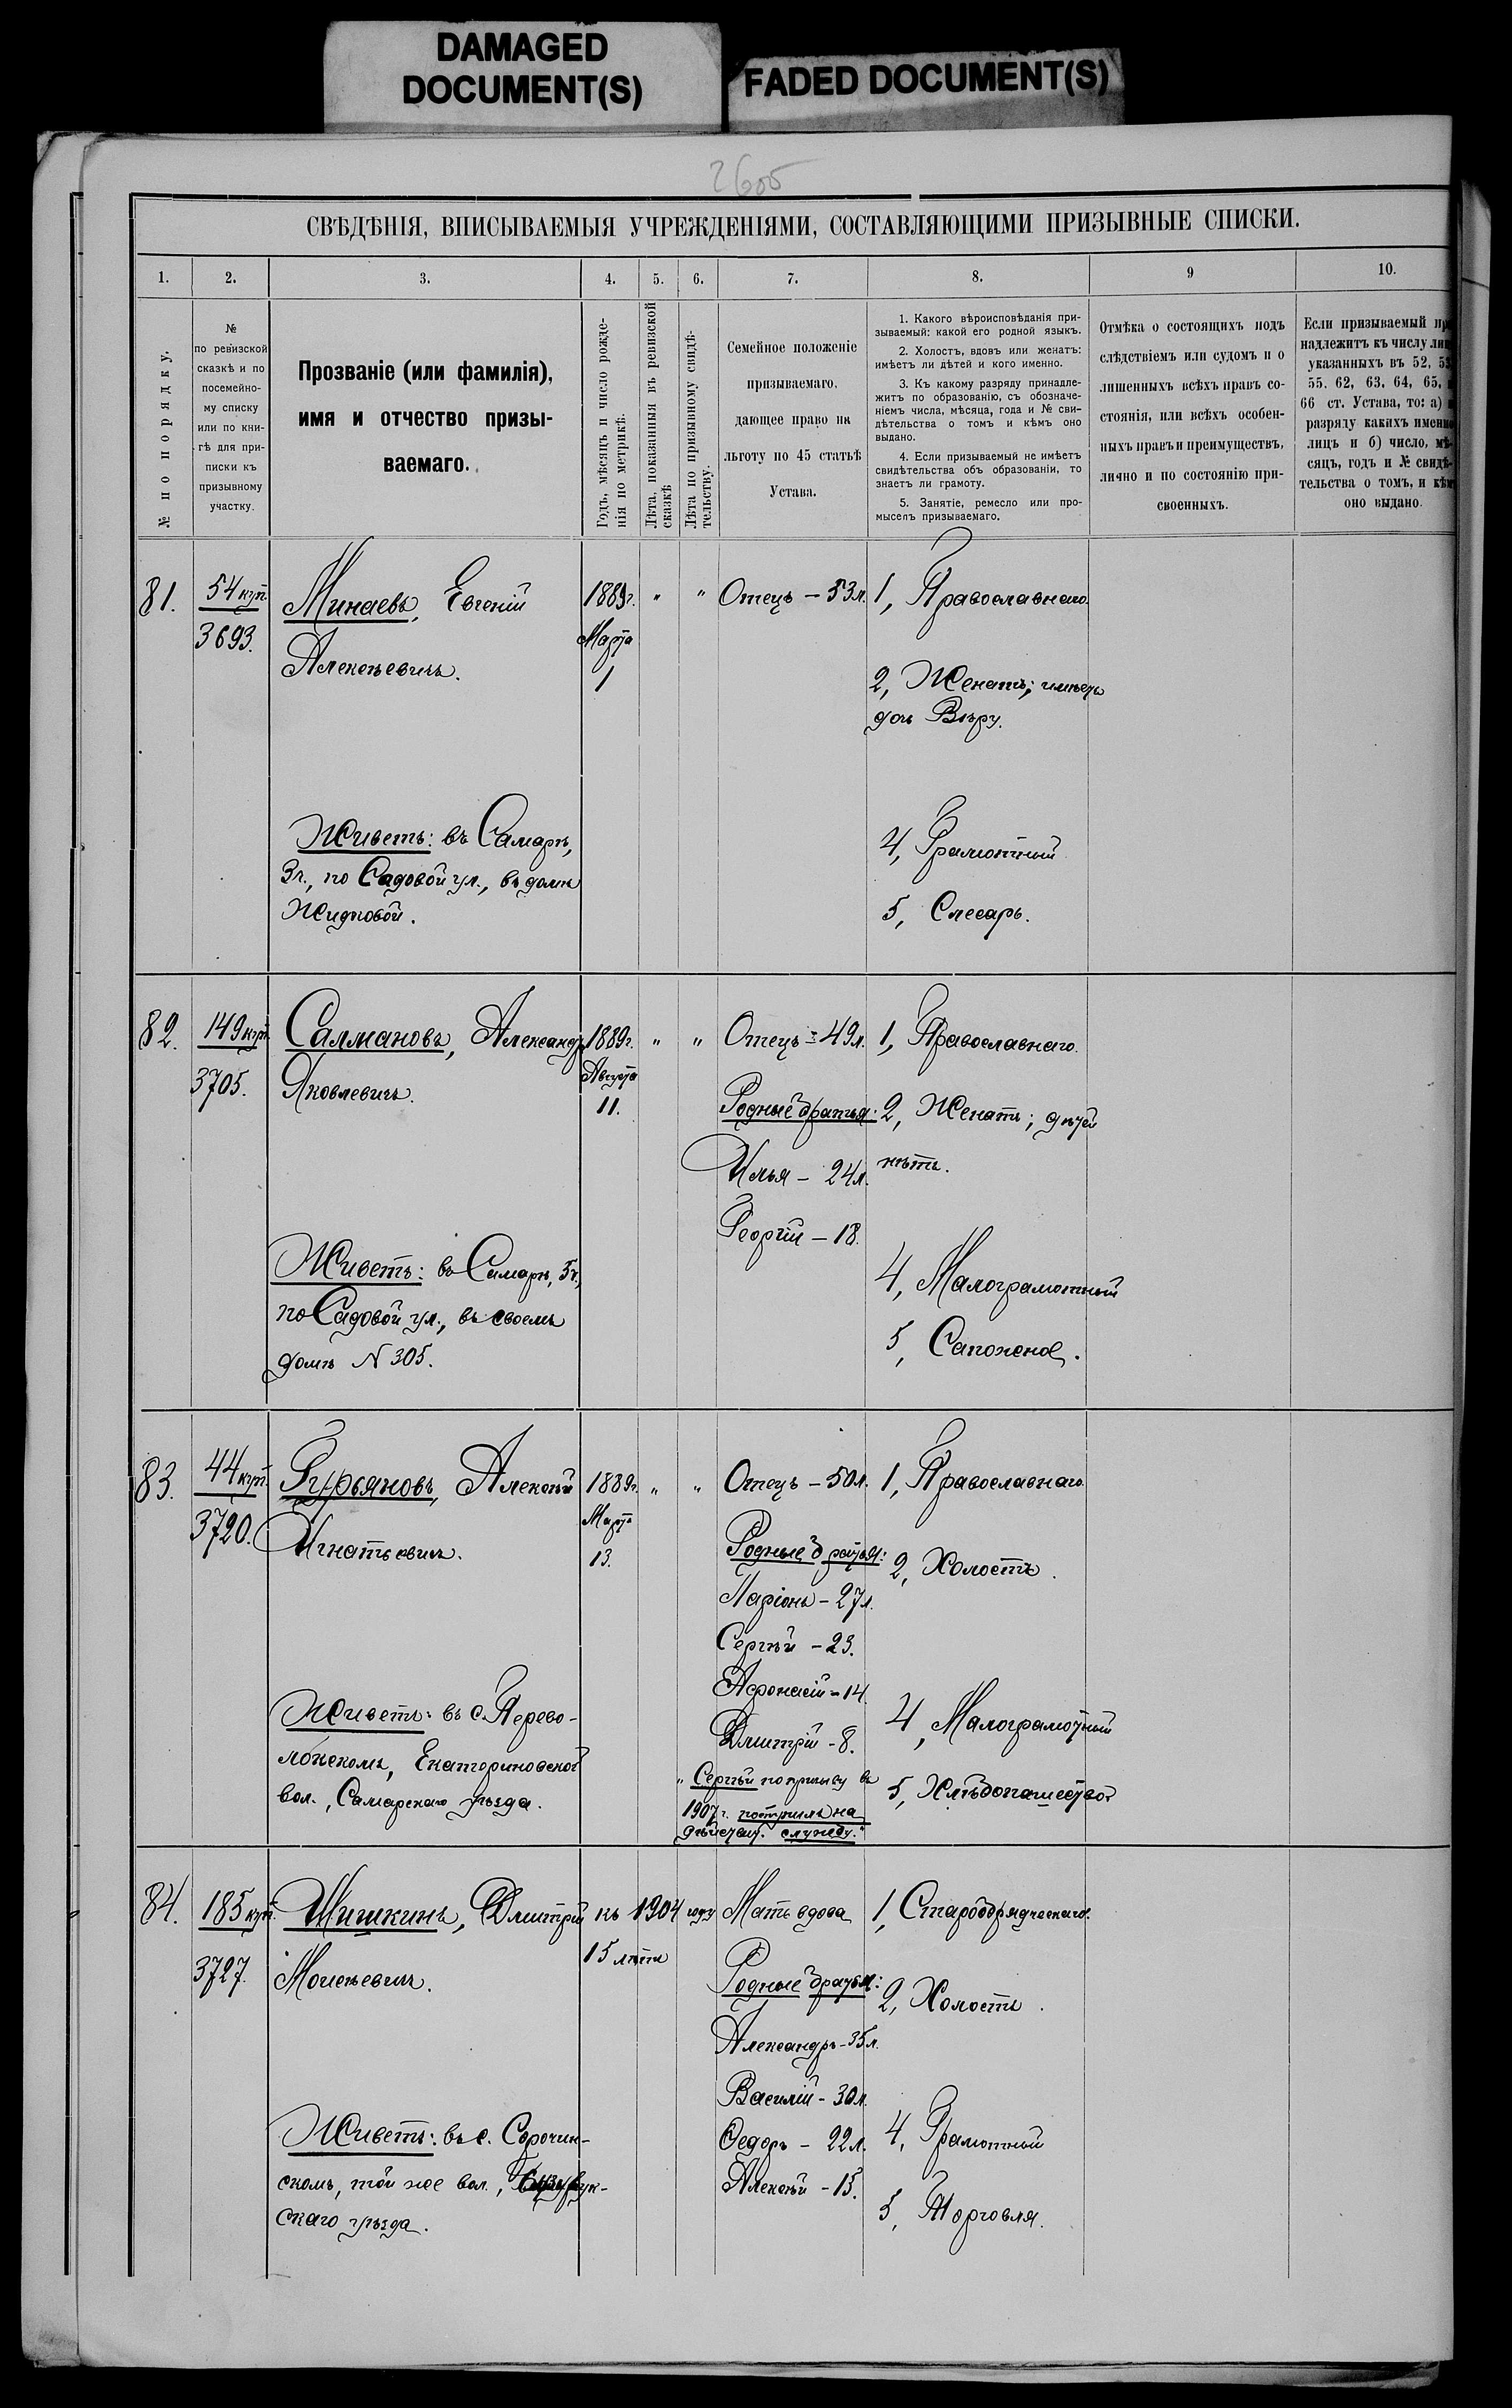 DAMAGED
DOCUMENT(S)
FADED DOCUMENT(S)
2605
СВѢДѢНІЯ, ВПИСЫВАЕМЫЯ УЧРЕЖДЕНІЯМИ, СОСТАВЛЯЮЩИМИ ПРИЗЫВНЫЕ СПИСКИ.
1.
2.
3.
4.
5.
6.
7.
8.
9
10.
№ по порядку.
№
по ревизской
сказкѣ и по
посемейно-
му списку
или по кни-
гѣ для при-
писки къ
призывному
участку.
Прозваніе (или фамилія),
имя и отчество призы-
ваемаго.
Годъ, мѣсяцъ и число рожде-
нія по метрикѣ.
Лѣта, показанныя въ ревизской
сказкѣ
Лѣта по призывному свидѣ-
тельству.
Семейное положеніе
призываемаго,
дающее право на
льготу по 45 статьѣ
Устава.
1. Какого вѣроисповѣданія при-
зываемый: какой его родной языкъ.
2. Холостъ, вдовъ или женатъ:
имѣетъ ли дѣтей и кого именно.
3. Къ какому разряду принадле-
житъ по образованію, съ обозначе-
ніемъ числа, мѣсяца, года и № сви-
дѣтельства о томъ и кѣмъ оно
выдано.
4. Если призываемый не имѣетъ
свидѣтельства объ образованіи, то
знаетъ ли грамоту.
5. Занятіе, ремесло или про-
мыселъ призываемаго.
Отмѣка о состоящихъ подъ
слѣдствіемъ или судомъ и о
лишенныхъ всѣхъ правъ со-
стоянія, или всѣхъ особен-
ныхъ правъ и преимуществъ,
лично и по состоянію при-
своенныхъ.
Если призываемый
надлежитъ къ числу
указанныхъ въ 52,
55. 62, 63, 64, 65,
66 ст. Устава, то: а)
разряду какихъ именно
лицъ и б) число, мѣ-
сяцъ, годъ и № свидѣ-
тельства о томъ, и кѣмъ
оно выдано.
81.
54 куп.
3693.
Минаевъ, Евгеній
Алексѣевичъ.
Живетъ: въ Самарѣ,
3ч., по Садовой ул., въ домѣ
Жидковой.
1889г.
Марта
1
"
"
Отецъ – 53л.
1, Православнаго.
2, Женатъ; имѣетъ
дочь Вѣру.
4, Грамотный
5, Слесарь.
82.
149 куп.
3705.
Салмановъ, Александръ
Яковлевичъ.
Живетъ: въ Самарѣ, 5ч.,
по Садовой ул., въ своемъ
домѣ N 305.
1889г.
Августа
11.
"
"
Отецъ – 49л.
Родные братья:
Илья – 24л.
Георгій – 18.
1, Православнаго.
2, Женатъ; дѣтей
нѣтъ.
4, Малограмотный
5, Сапожной.
83.
44 куп.
3720.
Гурьяновъ, Алексѣй
Игнатьевичъ.
Живетъ: въ с. Перево-
локскомъ, Екатериновской
вол., Самарскаго уѣзда.
1889г.
Марта
13.
"
"
Отецъ – 50л.
Родные братья:
Ларіонъ – 27л.
Сергѣй – 23.
Афонасій – 14.
Дмитрій – 8.
"Сергѣй по призыву въ
1907г. поступилъ на
дѣйствит. службу."
1, Православнаго
2, Холостъ.
4, Малограмотный
5, Хлѣбопашество.
84.
185 куп.
3727.
Шишкинъ, Дмитрій
Моисеевичъ.
Живетъ: въ с. Сорочин-
скомъ, той же вол., Бузулук-
скаго уѣзда.
къ 1904 году
15 лѣтъ
Мать вдова
Родные братья:
Александръ – 35л.
Василій – 30л.
Ѳедоръ – 22л.
Алексѣй – 13.
1, Старообрядческаго.
2, Холостъ.
4, Грамотный
5, Торговля.